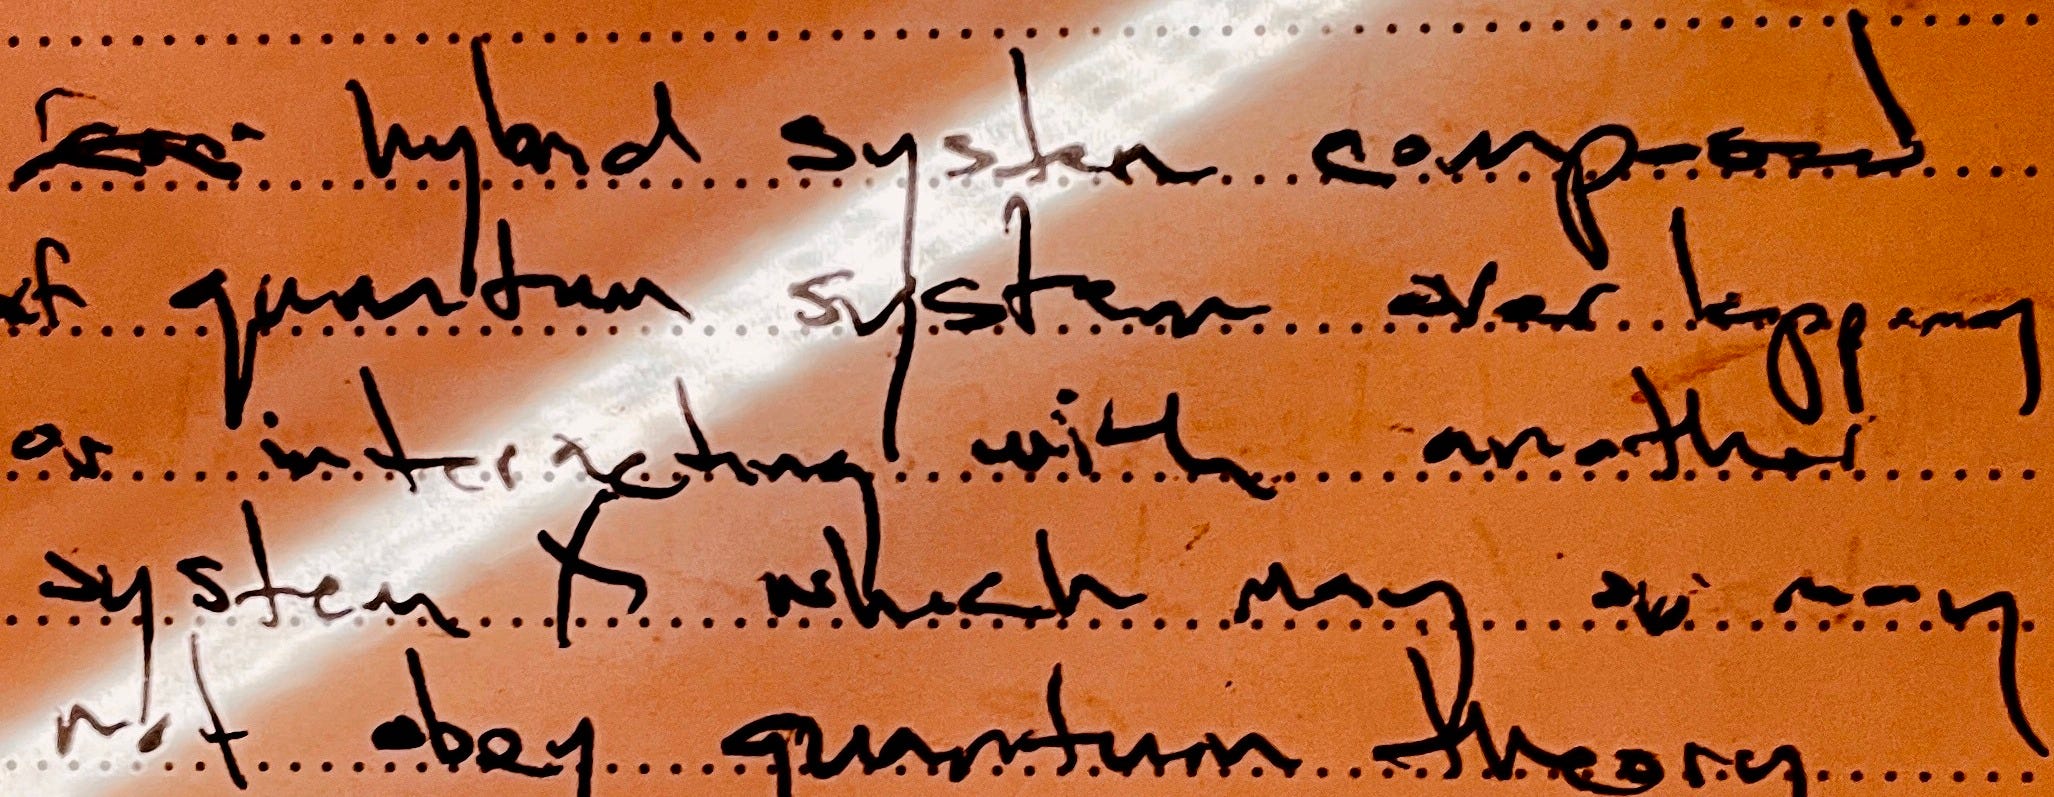 hybrid system composed
of quantum system over lapping
or interacting with another
system X which may or may
not obey quantum theory